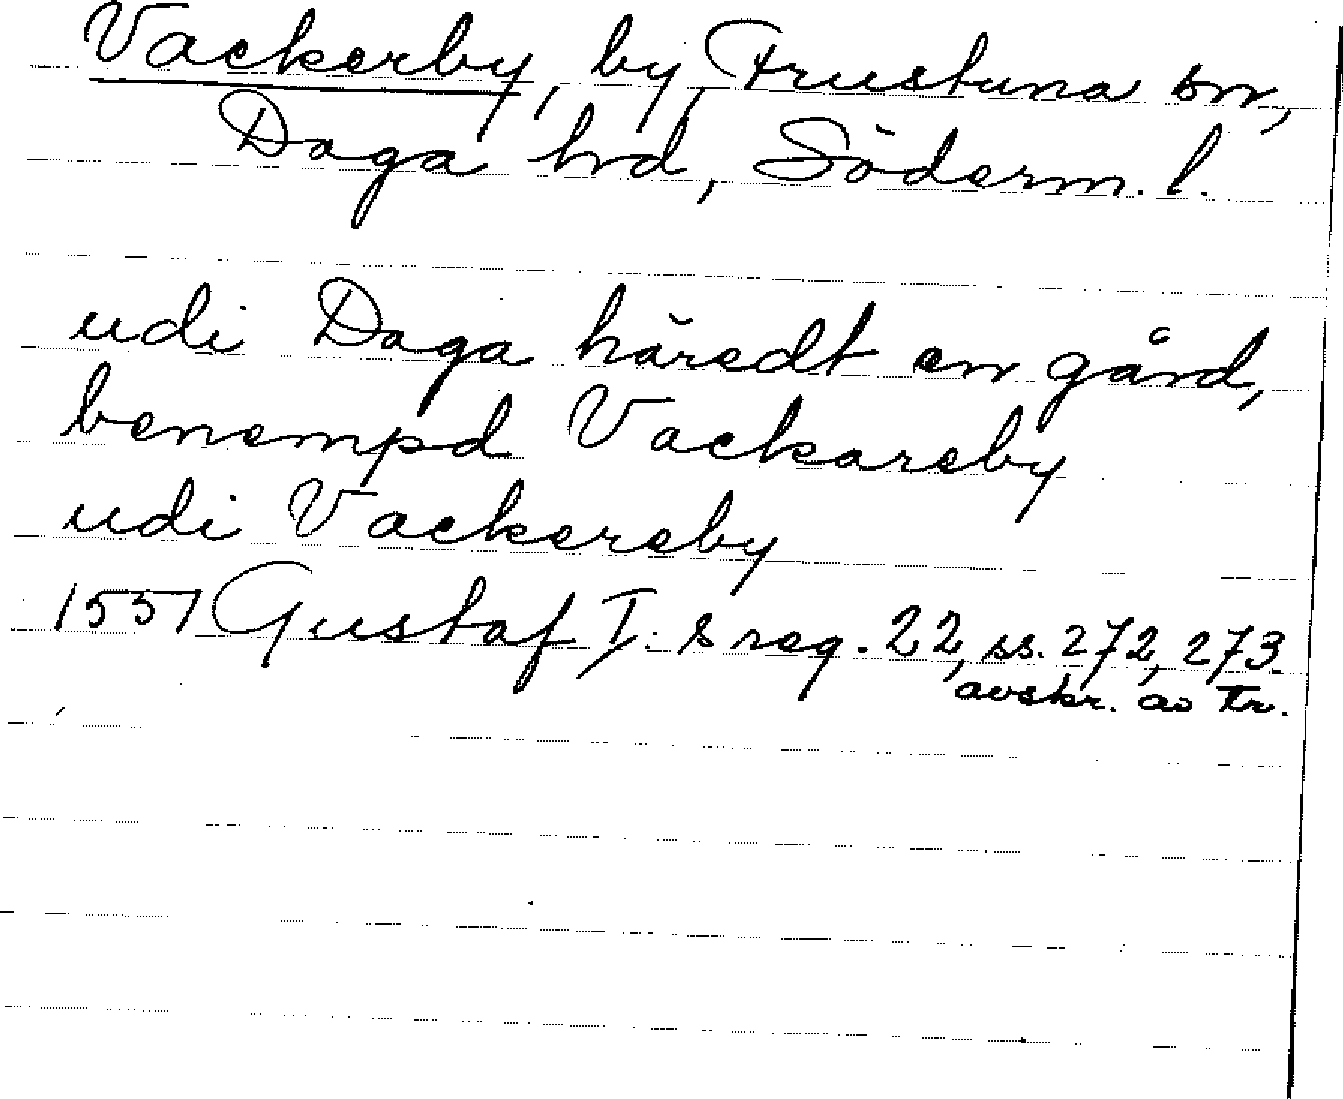 Vackerby, by, Frustuna sn,
Daga hd, Söderm. l.
udi Daga häredt en gård,
benempd Vackareby
udi Vackereby
1551 Gustaf I:s reg. 22, ss. 272, 273.
avskr. av Fr.